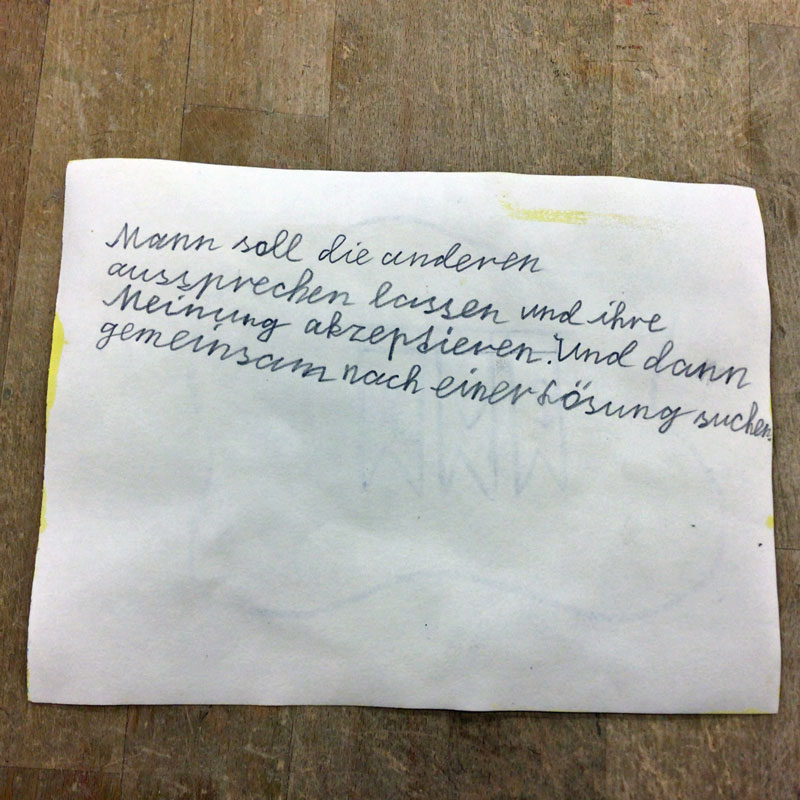 Mann soll die anderen
aussprechen lassen und ihre
Meinung akzeptieren. Und dann
gemeinsam nach einer Lösung suchen.